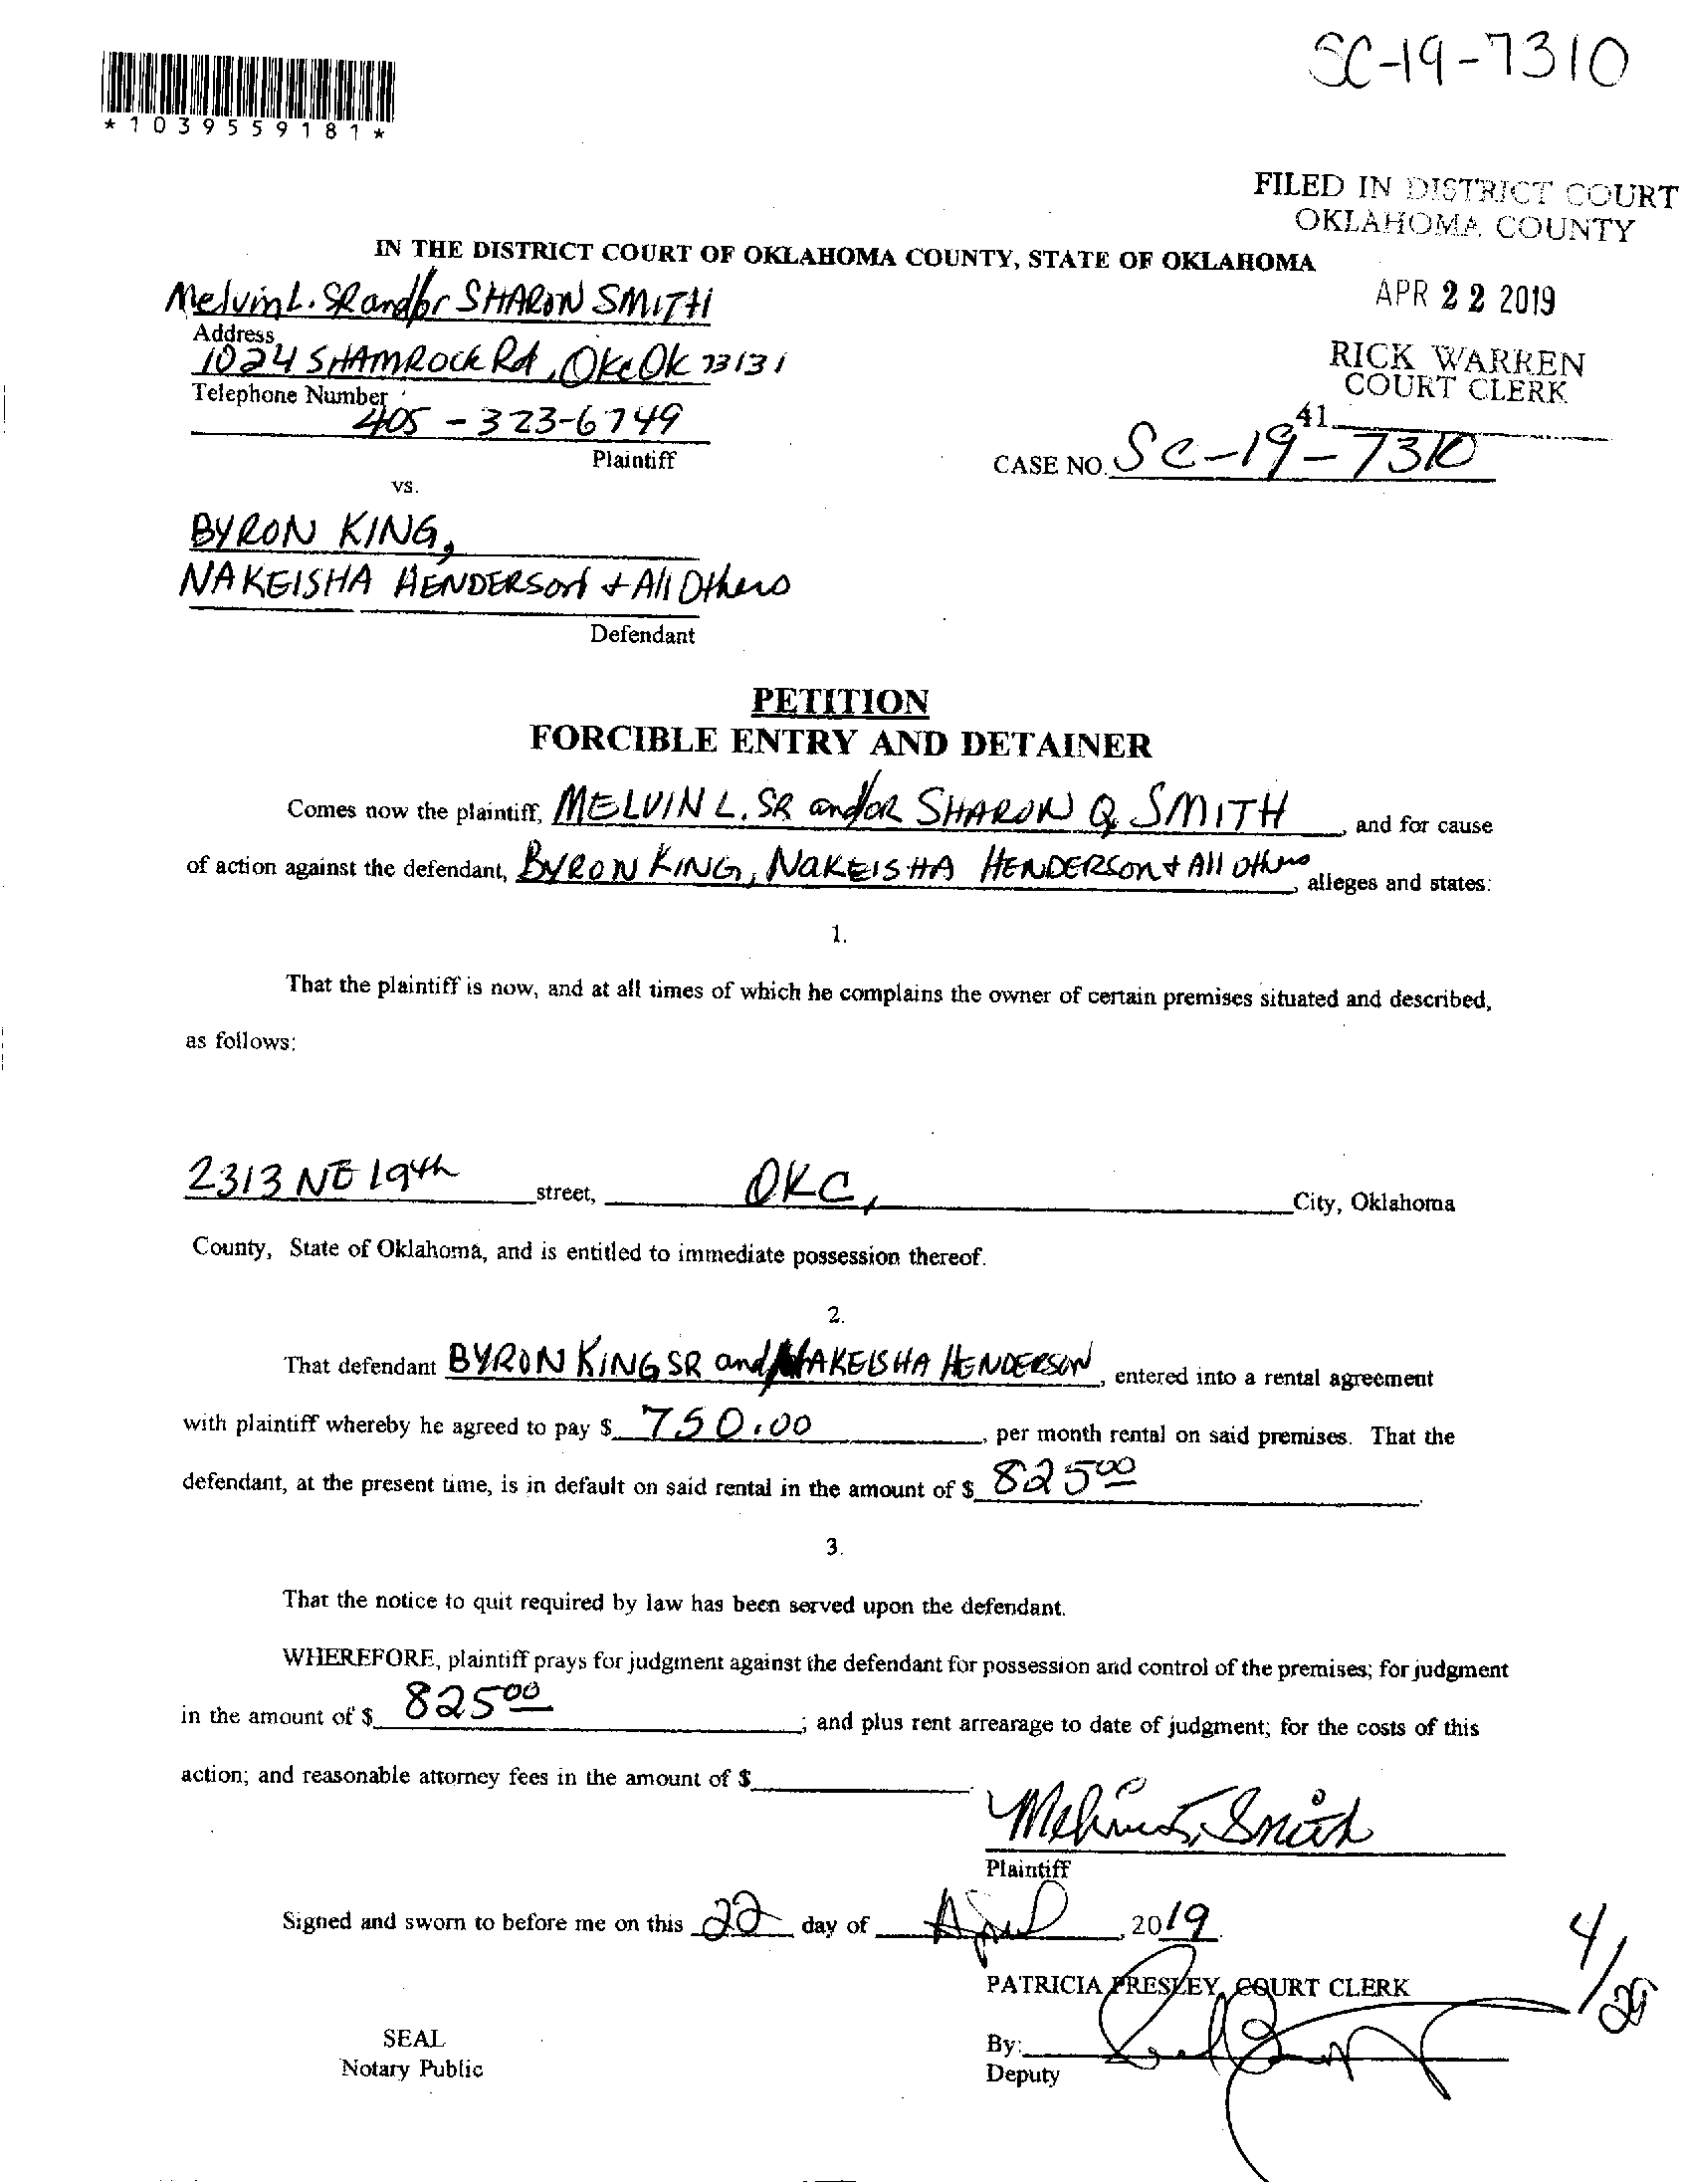 SC-19-7310
*1039559181*
FILED IN DISTRICT COURT
OKLAHOMA COUNTY
IN THE DISTRICT COURT OF OKLAHOMA COUNTY, STATE OF OKLAHOMA
APR 22 2019
Melvin L. SR and/or SHARON SMITH
Address
1024 SHAMROCK Rd, OKC OK 73131
RICK WARREN
COURT CLERK
Telephone Number
405-323-6749
41
Plaintiff
CASE NO. SC-19-7310
vs.
BYRON KING,
NAKEISHA HENDERSON + All Others
Defendant
PETITION
FORCIBLE ENTRY AND DETAINER
Comes now the plaintiff, MELVIN L. SR and/or SHARON Q SMITH, and for cause
of action against the defendant, BYRON KING, NAKEISHA HENDERSON + All Others, alleges and states:
1.
That the plaintiff is now, and at all times of which he complains the owner of certain premises situated and described,
as follows:
2313 NE 19th street, OKC, City, Oklahoma
County, State of Oklahoma, and is entitled to immediate possession thereof.
2.
That defendant BYRON KING SR and NAKEISHA HENDERSON, entered into a rental agreement
with plaintiff whereby he agreed to pay $ 750.00, per month rental on said premises. That the
defendant, at the present time, is in default on said rental in the amount of $ 825 00.
3.
That the notice to quit required by law has been served upon the defendant.
WHEREFORE, plaintiff prays for judgment against the defendant for possession and control of the premises; for judgment
in the amount of $ 825 00; and plus rent arrearage to date of judgment; for the costs of this
action; and reasonable attorney fees in the amount of $
Melvin L. Smith
Plaintiff
Signed and sworn to before me on this 22 day of April, 2019.
4/29
PATRICIA PRESLEY, COURT CLERK
SEAL
Notary Public
By:
Deputy